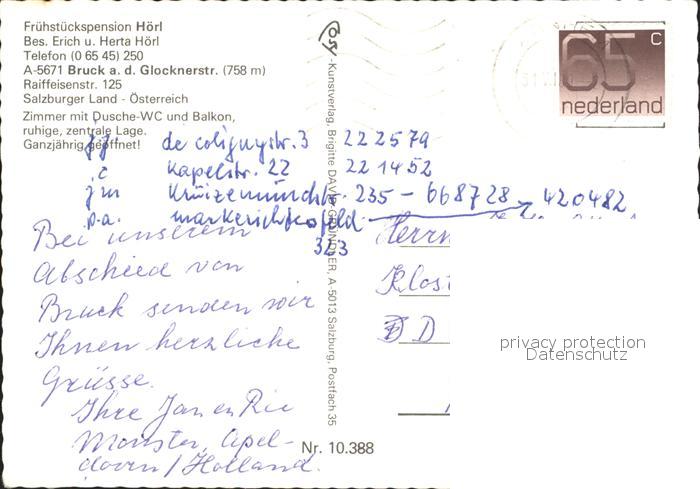 Frühstückspension Hörl
Bes. Erich u. Herta Hörl
Telefon (0 65 45) 250
A-5671 Bruck a. d. Glocknerstr. (758 m)
Raiffeisenstr. 125
Salzburger Land - Österreich
Zimmer mit Dusche-WC und Balkon,
ruhige, zentrale Lage.
Ganzjährig geöffnet!
65 c
nederland
de colignystr. 3 222579
kapelstr. 22 221452
235 - 668728 420482
p.a.
323
Bei unserem
Abschied von
Bruck senden wir
Ihnen herzliche
Grüsse.
Ihre Jan en Rie
Monster, Apel-
doorn / Holland.
Cosy-Kunstverlag, Brigitte DAVID-GRÜNDLER, A-5013 Salzburg, Postfach 35
Nr. 10.388
Herrn
Klos
D
privacy protection
Datenschutz